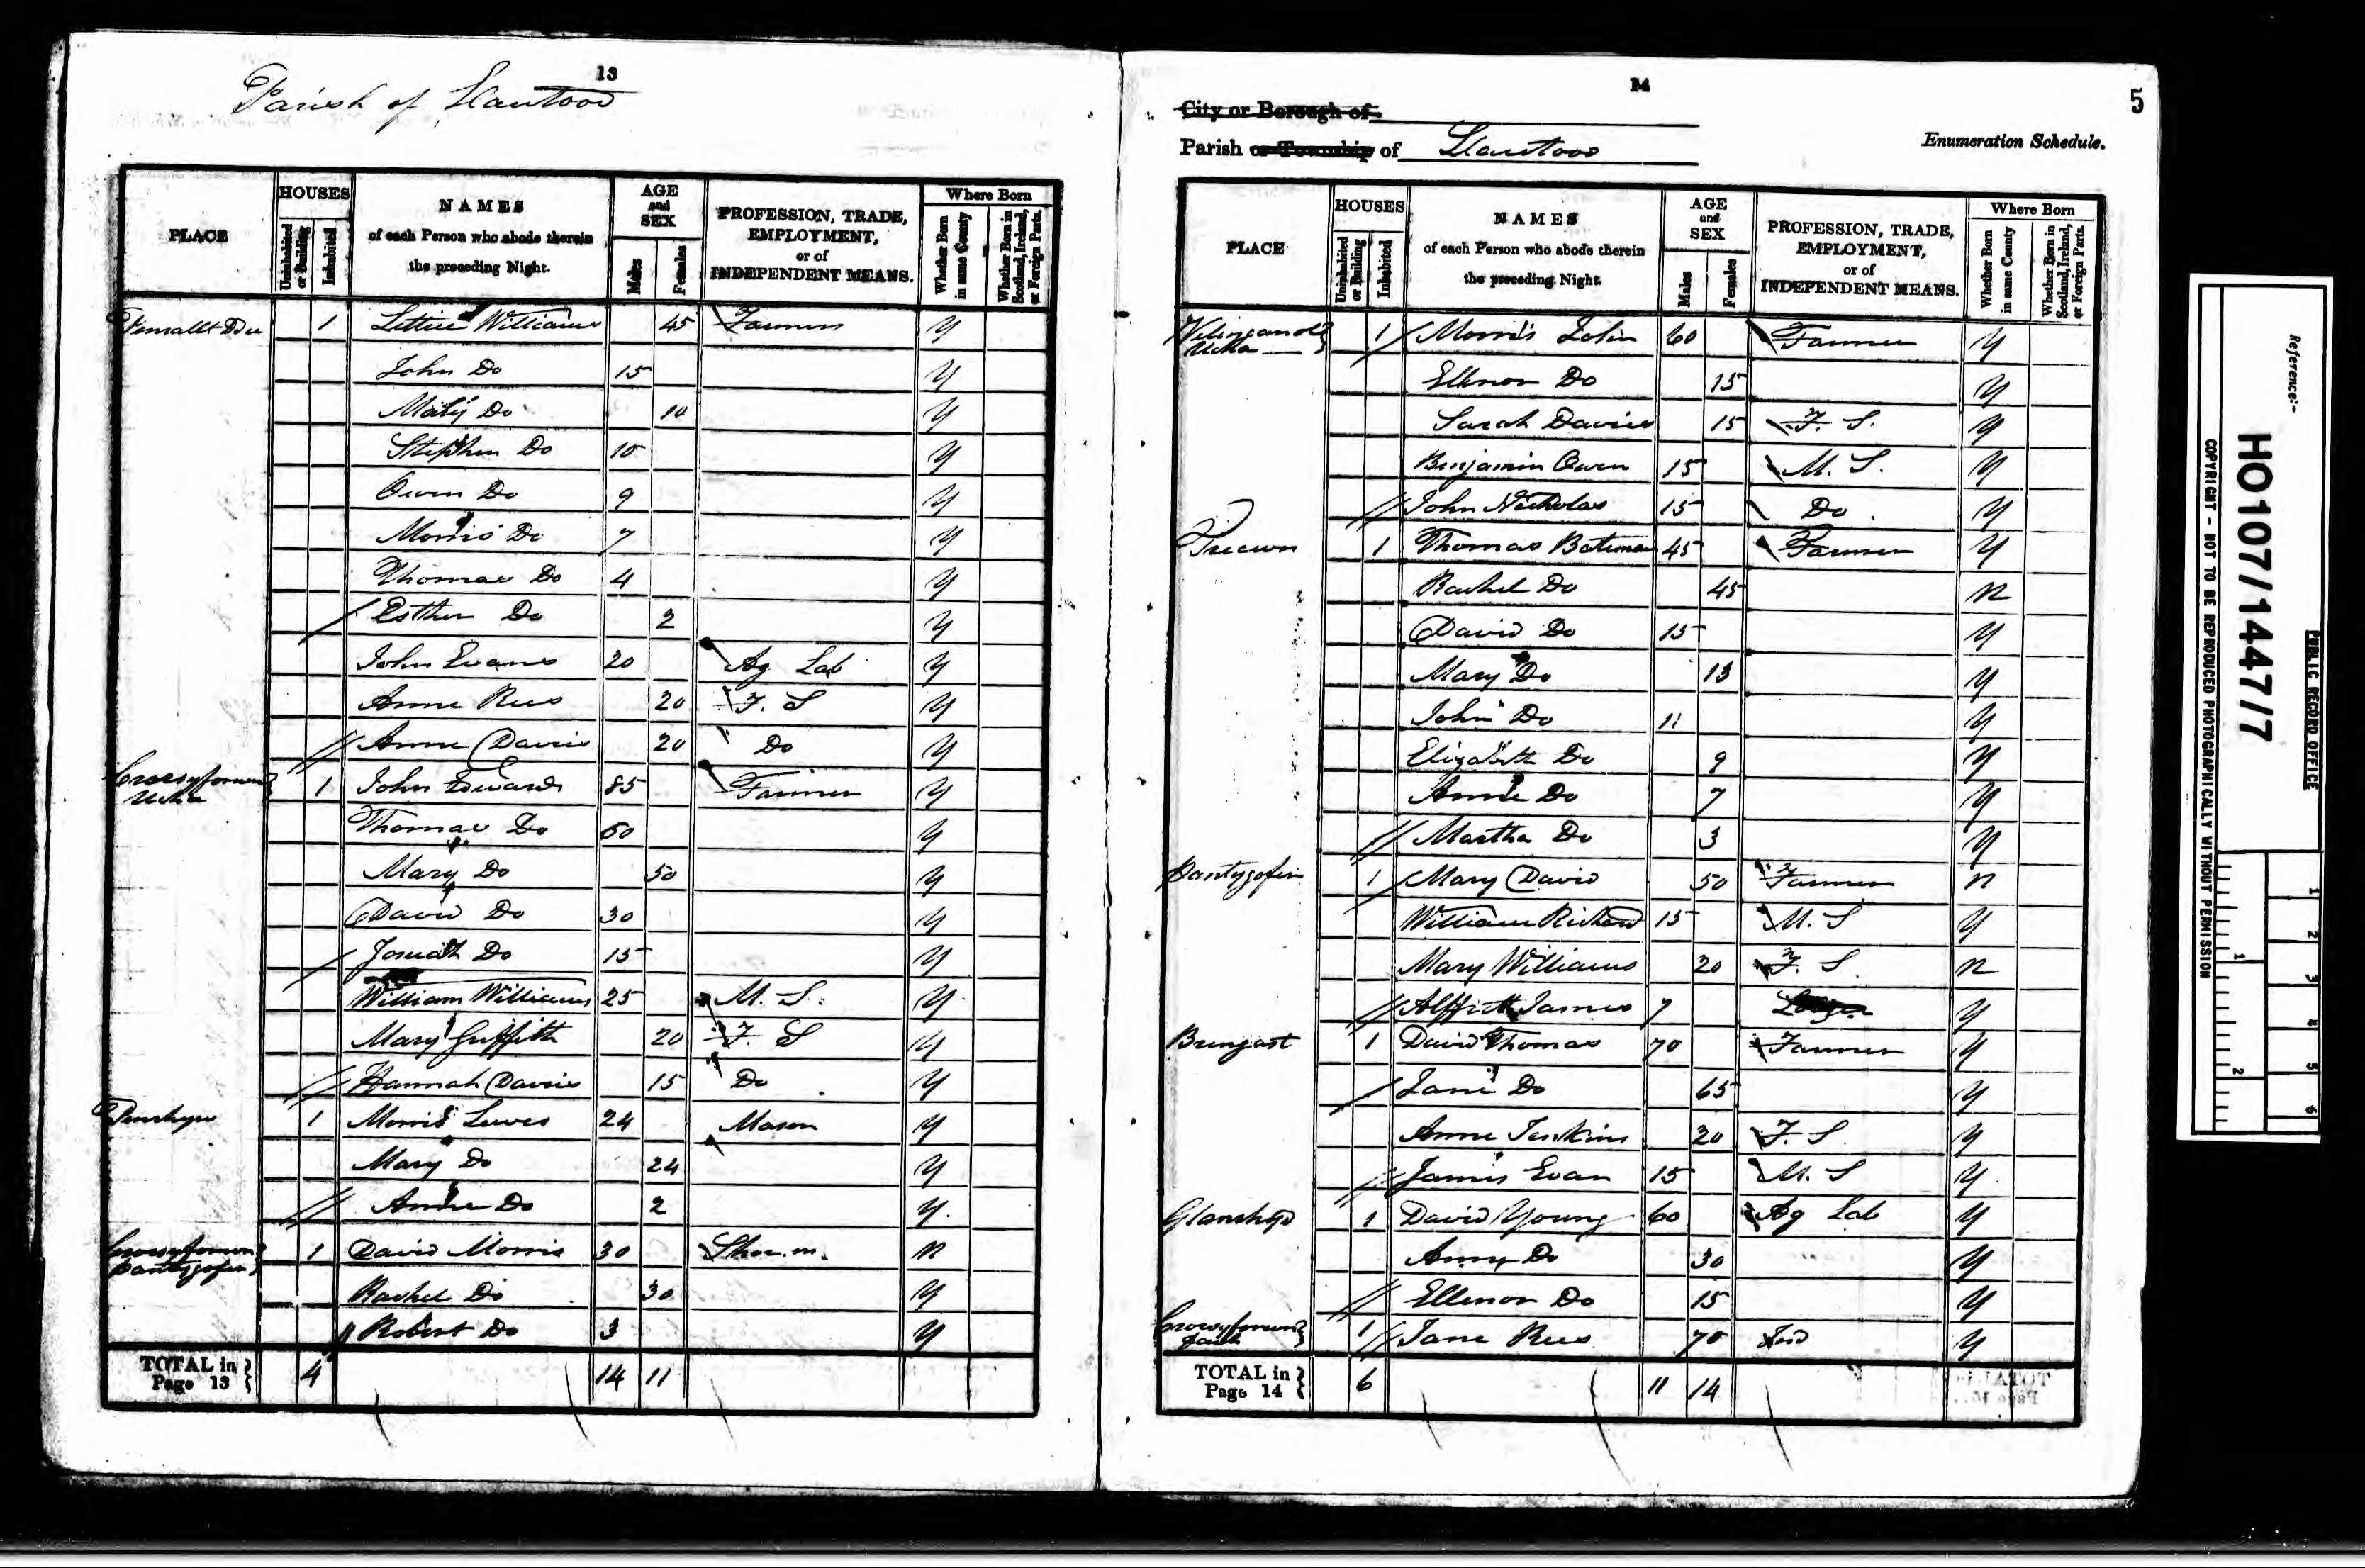 13
Parish of Llantood
PLACE
HOUSES
Uninhabited or Building
Inhabited
NAMES
of each Person who abode therein
the preceding Night.
AGE
and
SEX
Males
Females
PROFESSION, TRADE,
EMPLOYMENT,
or of
INDEPENDENT MEANS.
Where Born
Whether Born in same County
Whether Born in Scotland, Ireland, or Foreign Parts.
Penrallt Du 1 Lettice Williams 45 Farmer Y
John Do 15 Y
Mary Do 10 Y
Stephen Do 10 Y
Owen Do 9 Y
Morris Do 7 Y
Thomas Do 4 Y
Esther Do 2 Y
John Evans 20 Ag Lab Y
Anne Rees 20 F. S Y
Anne Davies 20 Do Y
1 John Edwards 85 Farmer Y
Ucha
Thomas Do 60 Y
Mary Do 50 Y
David Do 30 Y
Josiah Do 15 Y
William Williams 25 M. S. Y
Mary Griffith 20 F. S Y
Hannah Davies 15 Do Y
1 Morris Lewes 24 Mason Y
Mary Do 24 Y
Anne Do 2 Y
1 David Morris 30 Shoe. m. N
Pantygofin
Rachel Do 30 Y
Robert Do 3 Y
TOTAL in Page 13 } 4 14 11
14
5
City or Borough of
Parish or Township of Llantood
Enumeration Schedule.
PLACE
HOUSES
Uninhabited or Building
Inhabited
NAMES
of each Person who abode therein
the preceding Night.
AGE
and
SEX
Males
Females
PROFESSION, TRADE,
EMPLOYMENT,
or of
INDEPENDENT MEANS.
Where Born
Whether Born in same County
Whether Born in Scotland, Ireland, or Foreign Parts.
1 Morris John 60 Farmer Y
Ucha
Ellenor Do 15 Y
Sarah Davies 15 F. S. Y
Benjamin Owen 15 M. S. Y
John Nicholas 15 Do Y
1 Thomas Bateman 45 Farmer Y
Rachel Do 45 N
David Do 15 Y
Mary Do 13 Y
John Do 11 Y
Elizabeth Do 9 Y
Anne Do 7 Y
Martha Do 3 Y
Pantygofin 1 Mary David 50 Farmer N
William Richard 15 M. S Y
Mary Williams 20 F. S N
James 7 Y
Brengast 1 David Thomas 70 Farmer Y
Jane Do 65 Y
Anne Jenkins 20 F. S Y
James Evan 15 M. S Y
Glanrhyd 1 David Young 60 Ag Lab Y
Anny Do 30 Y
Ellenor Do 15 Y
1 Jane Rees 70 Ind Y
TOTAL in Page 14 } 6 11 14
Reference:-
HO107/1447/7
PUBLIC RECORD OFFICE
COPYRIGHT - NOT TO BE REPRODUCED PHOTOGRAPHICALLY WITHOUT PERMISSION
1 2 3 4 5 6
1 2